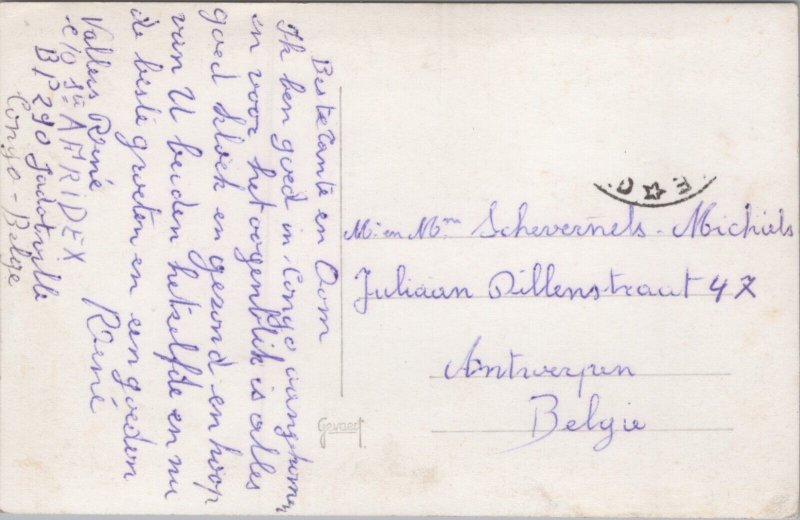 Beste Tante en Oom
Ik ben goed in Congo aangekomen
en voor het oogenblik is alles
goed kloek en gezond en hoop
van U beiden hetzelfde en nu
de beste groeten en een goeden
René
Vallens René
c/o Sté AMRIDEX
BP 290 Jadotville
Congo-Belge
Mr en Mme Schevernels-Michiels
Juliaan Dillenstraat 47
Antwerpen
Belgie
Gevaert